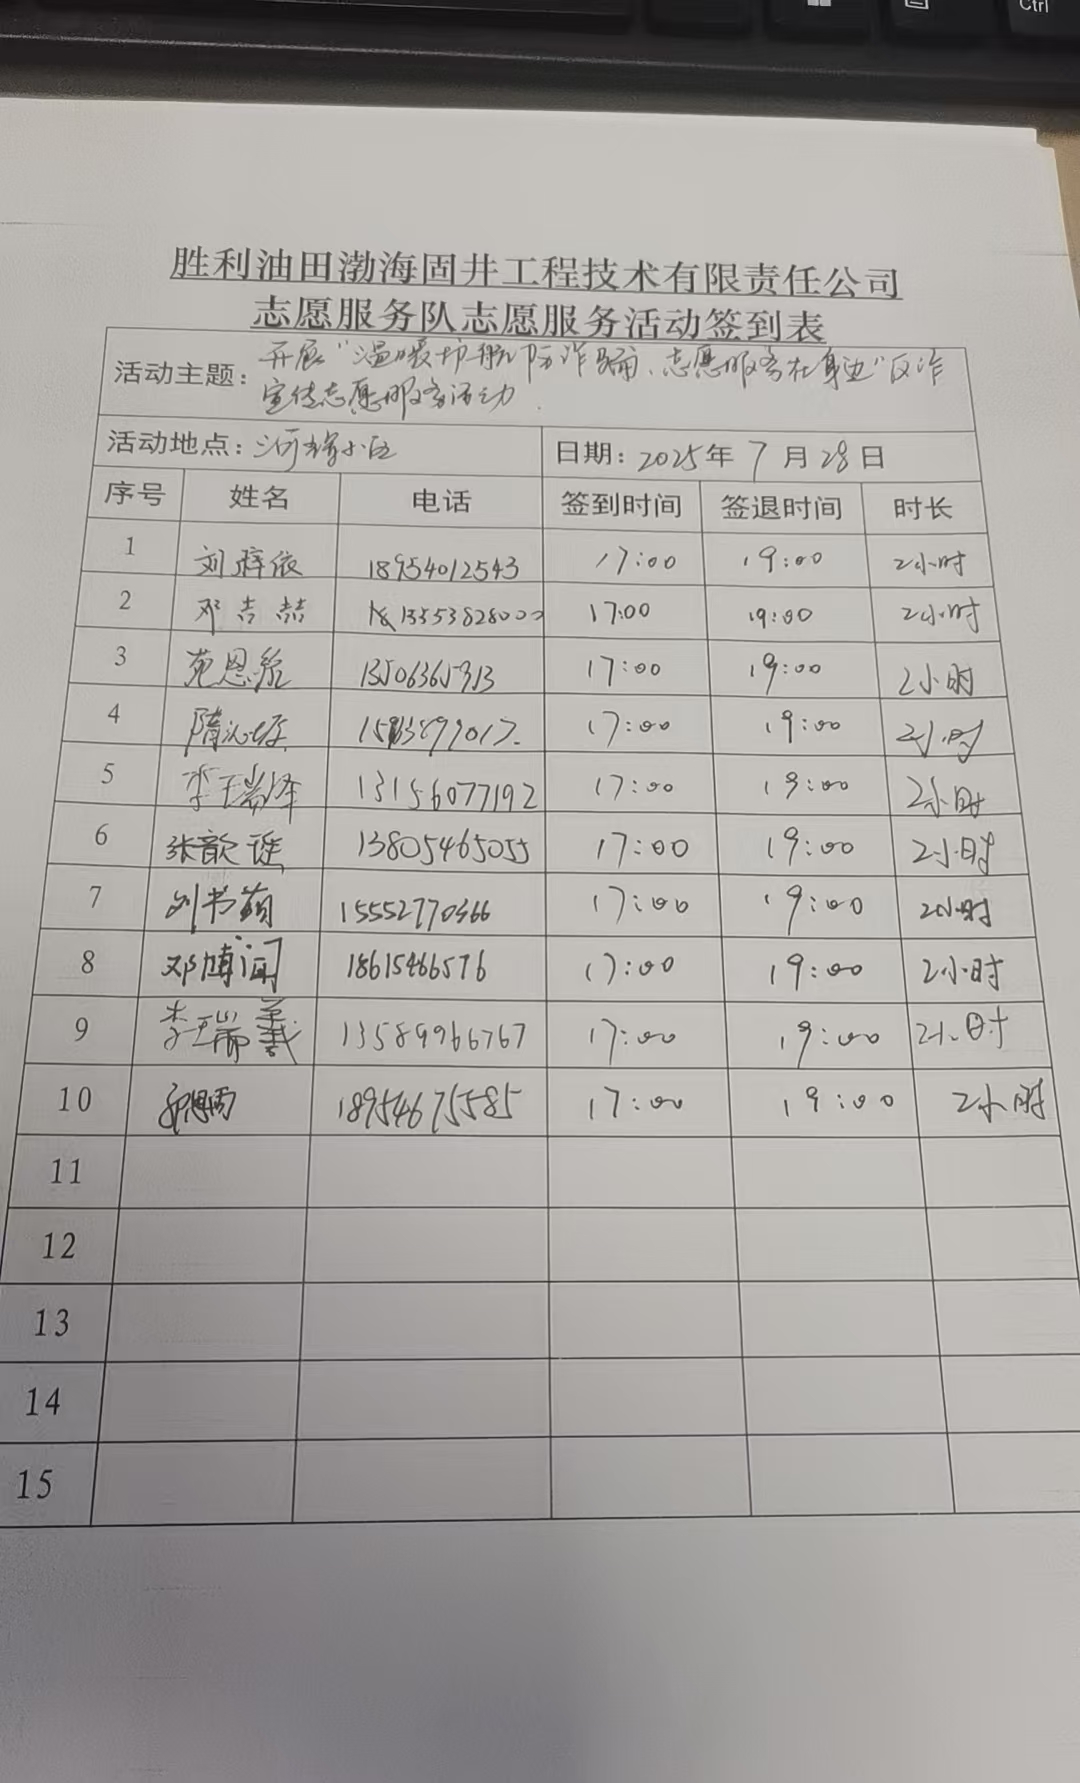 Ctrl
胜利油田渤海固井工程技术有限责任公司
志愿服务队志愿服务活动签到表
活动主题：开展“温暖护航防诈骗、志愿服务在身边”反诈
宣传志愿服务活动
活动地点：河 小区 日期：2025年 7 月 28 日
序号 姓名 电话 签到时间 签退时间 时长
1 刘梓依 18954012543 17:00 19:00 2小时
2 邓吉喆 13553828000 17:00 19:00 2小时
3 苑恩 17:00 19:00 2小时
4 隋 17:00 19:00 2小时
5 李瑞泽 13156077192 17:00 19:00 2小时
6 张歆谣 13805465055 17:00 19:00 2小时
7 刘书萌 15552770366 17:00 19:00 2小时
8 邓博闻 18615466576 17:00 19:00 2小时
9 李瑞羲 13589966767 17:00 19:00 2小时
10 18954675585 17:00 19:00 2小时
11
12
13
14
15